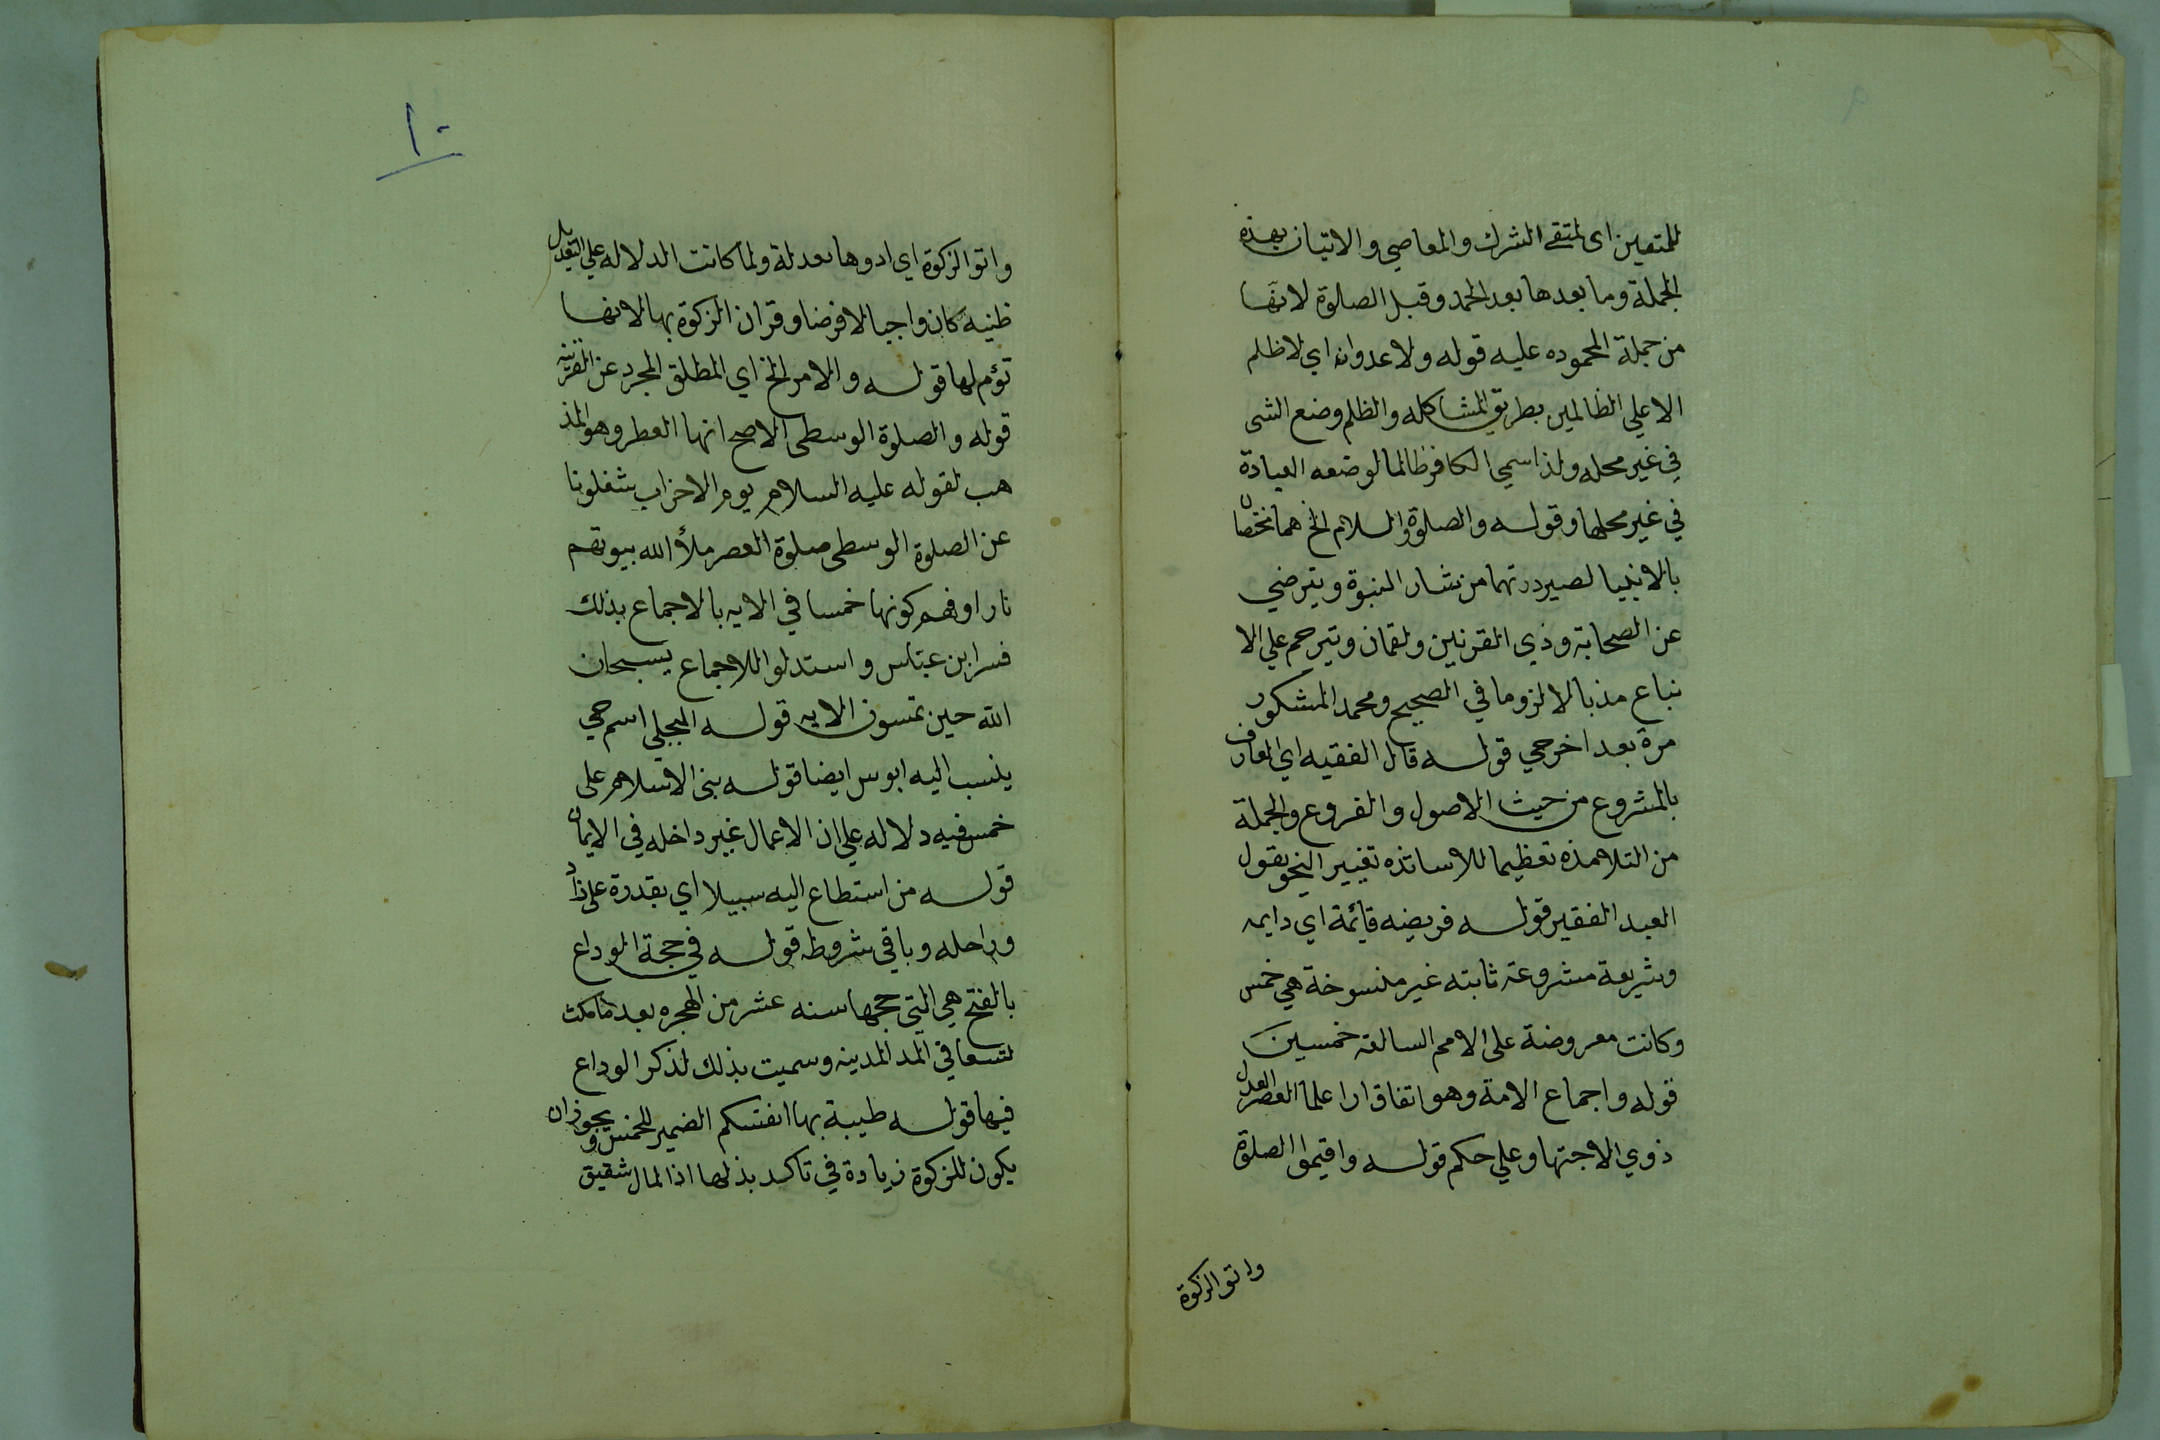 ٩
للمتقين اى لمتقي الشرك والمعاصي والاتيان بهذه
الجملة وما بعدها بعد الحمد وقبل الصلوة لانها
من جملة المحموده عليه قوله ولا عدوان اي لا ظلم
الا علي الظالمين بطريق المشاكله والظلم وضع الشى
في غير محله ولذا سمي الكافر ظالما لوضعه العبادة
في غير محلها وقوله والصلوة والسلام الخ هما مختصان
بالانبيا لصيردرتهما من شار النبوة ويترضي
عن الصحابة وذي القرنين ولقمان ويترحم علي الا
تباع مذبا لا لزوما في الصحيح ومحمد المشكور
مرة بعد اخرجي قوله قال الفقيه اي العارف
بالمشروع من حيث الاصول والفروع والجملة
من التلامذه تعظيما للاساتذه تغيير النحو يقول
العبد الفقير قوله فريضه قايمة اي دايمه
وشريعة مشروعة ثابته غير منسوخة هي خمس
وكانت معروضة على الامم السالفه خمسين
قوله واجماع الامة وهو اتفاق ارا علما العصر العدل
ذوي الاجتهاد علي حكم قوله واقيموا الصلوة
واتوالزكوة
١٠
واتوالزكوة اي ادوها معدلة ولما كانت الدلاله علي التعديل
ظنية كان واجبا لا فرضا وقران الزكوة بها لانها
تؤم لها قوله والامر الخ اي المطلق المجرد عن القرينه
قوله والصلوة الوسطى الاصح انها العطر وهو المذ
هب لقوله عليه السلام يوم الاحزاب شغلونا
عن الصلوة الوسطى صلوة العصر ملأ الله بيوتهم
نارا وفهم كونها خمسا في الايه بالاجماع بذلك
فسر ابن عباس واستدلوا للاجماع بسبحان
الله حين تمسون الايه قوله البجلي اسم حي
ينسب اليه ابوس ايضا قوله بنى الاسلام على
خمس فيه دلاله علي ان الاعمال غير داخله في الايمان
قوله من استطاع اليه سبيلا اي بقدرة على زاد
وراحله وباقي شروطه قوله في حجة الوداع
بالفتح هي التي حجها سنه عشر من الهجره بعد ما مكث
تسعا في المد المدينه وسميت بذلك لذكر الوداع
فيها قوله طيبة بها انفسكم الضمير للخمس ويجوز ان
يكون للزكوة زيادة في تاكيد بذلها اذ المال شقيق